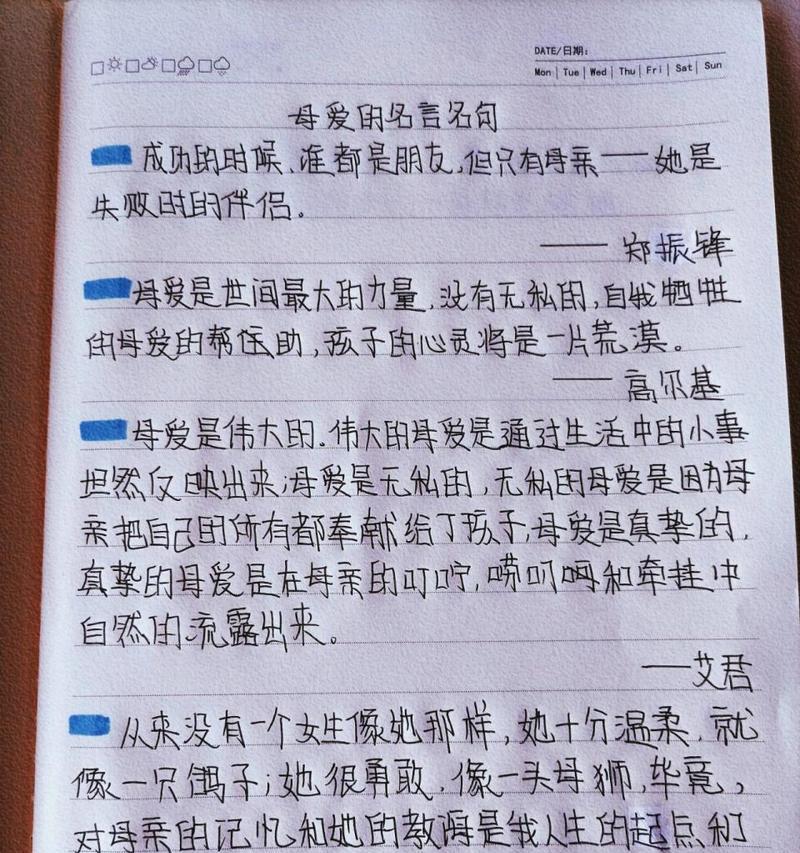 DATE/日期：
Mon | Tue | Wed | Thu | Fri | Sat | Sun
母爱的名言名句
成功的时候、谁都是朋友,但只有母亲——她是
失败时的伴侣。
——郑振锋
母爱是世间最大的力量,没有无私的,自我牺牲
的母爱的帮助,孩子的心灵将是一片荒漠。
——高尔基
母爱是伟大的.伟大的母爱是通过生活中的小事
坦然反映出来;母爱是无私的,无私的母爱是因为母
亲把自己的所有都奉献给了孩子,母爱是真挚的,
真挚的母爱是在母亲的叮咛,唠叨和牵挂中
自然的流露出来。
——艾君
从来没有一个女生像她那样,她十分温柔,就
像一只鸽子;她很勇敢,像一头母狮,毕竟,
对母亲的记忆和她的教诲是我人生的起点和